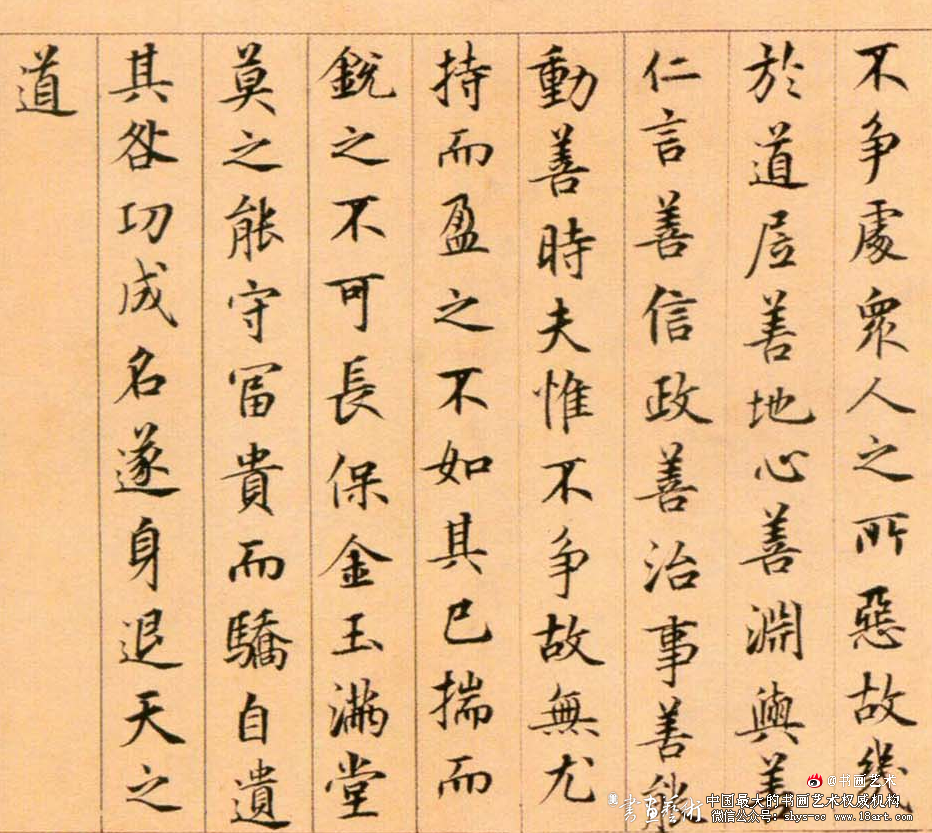 不争處衆人之所惡故幾
於道居善地心善淵與善
仁言善信政善治事善能
動善時夫惟不争故無尤
持而盈之不如其已揣而
銳之不可長保金玉滿堂
莫之能守富貴而驕自遺
其咎功成名遂身退天之
道
@书画艺术
書畫藝術
中国最大的书画艺术权威机构
微信公众号：shys-cc www.18art.com